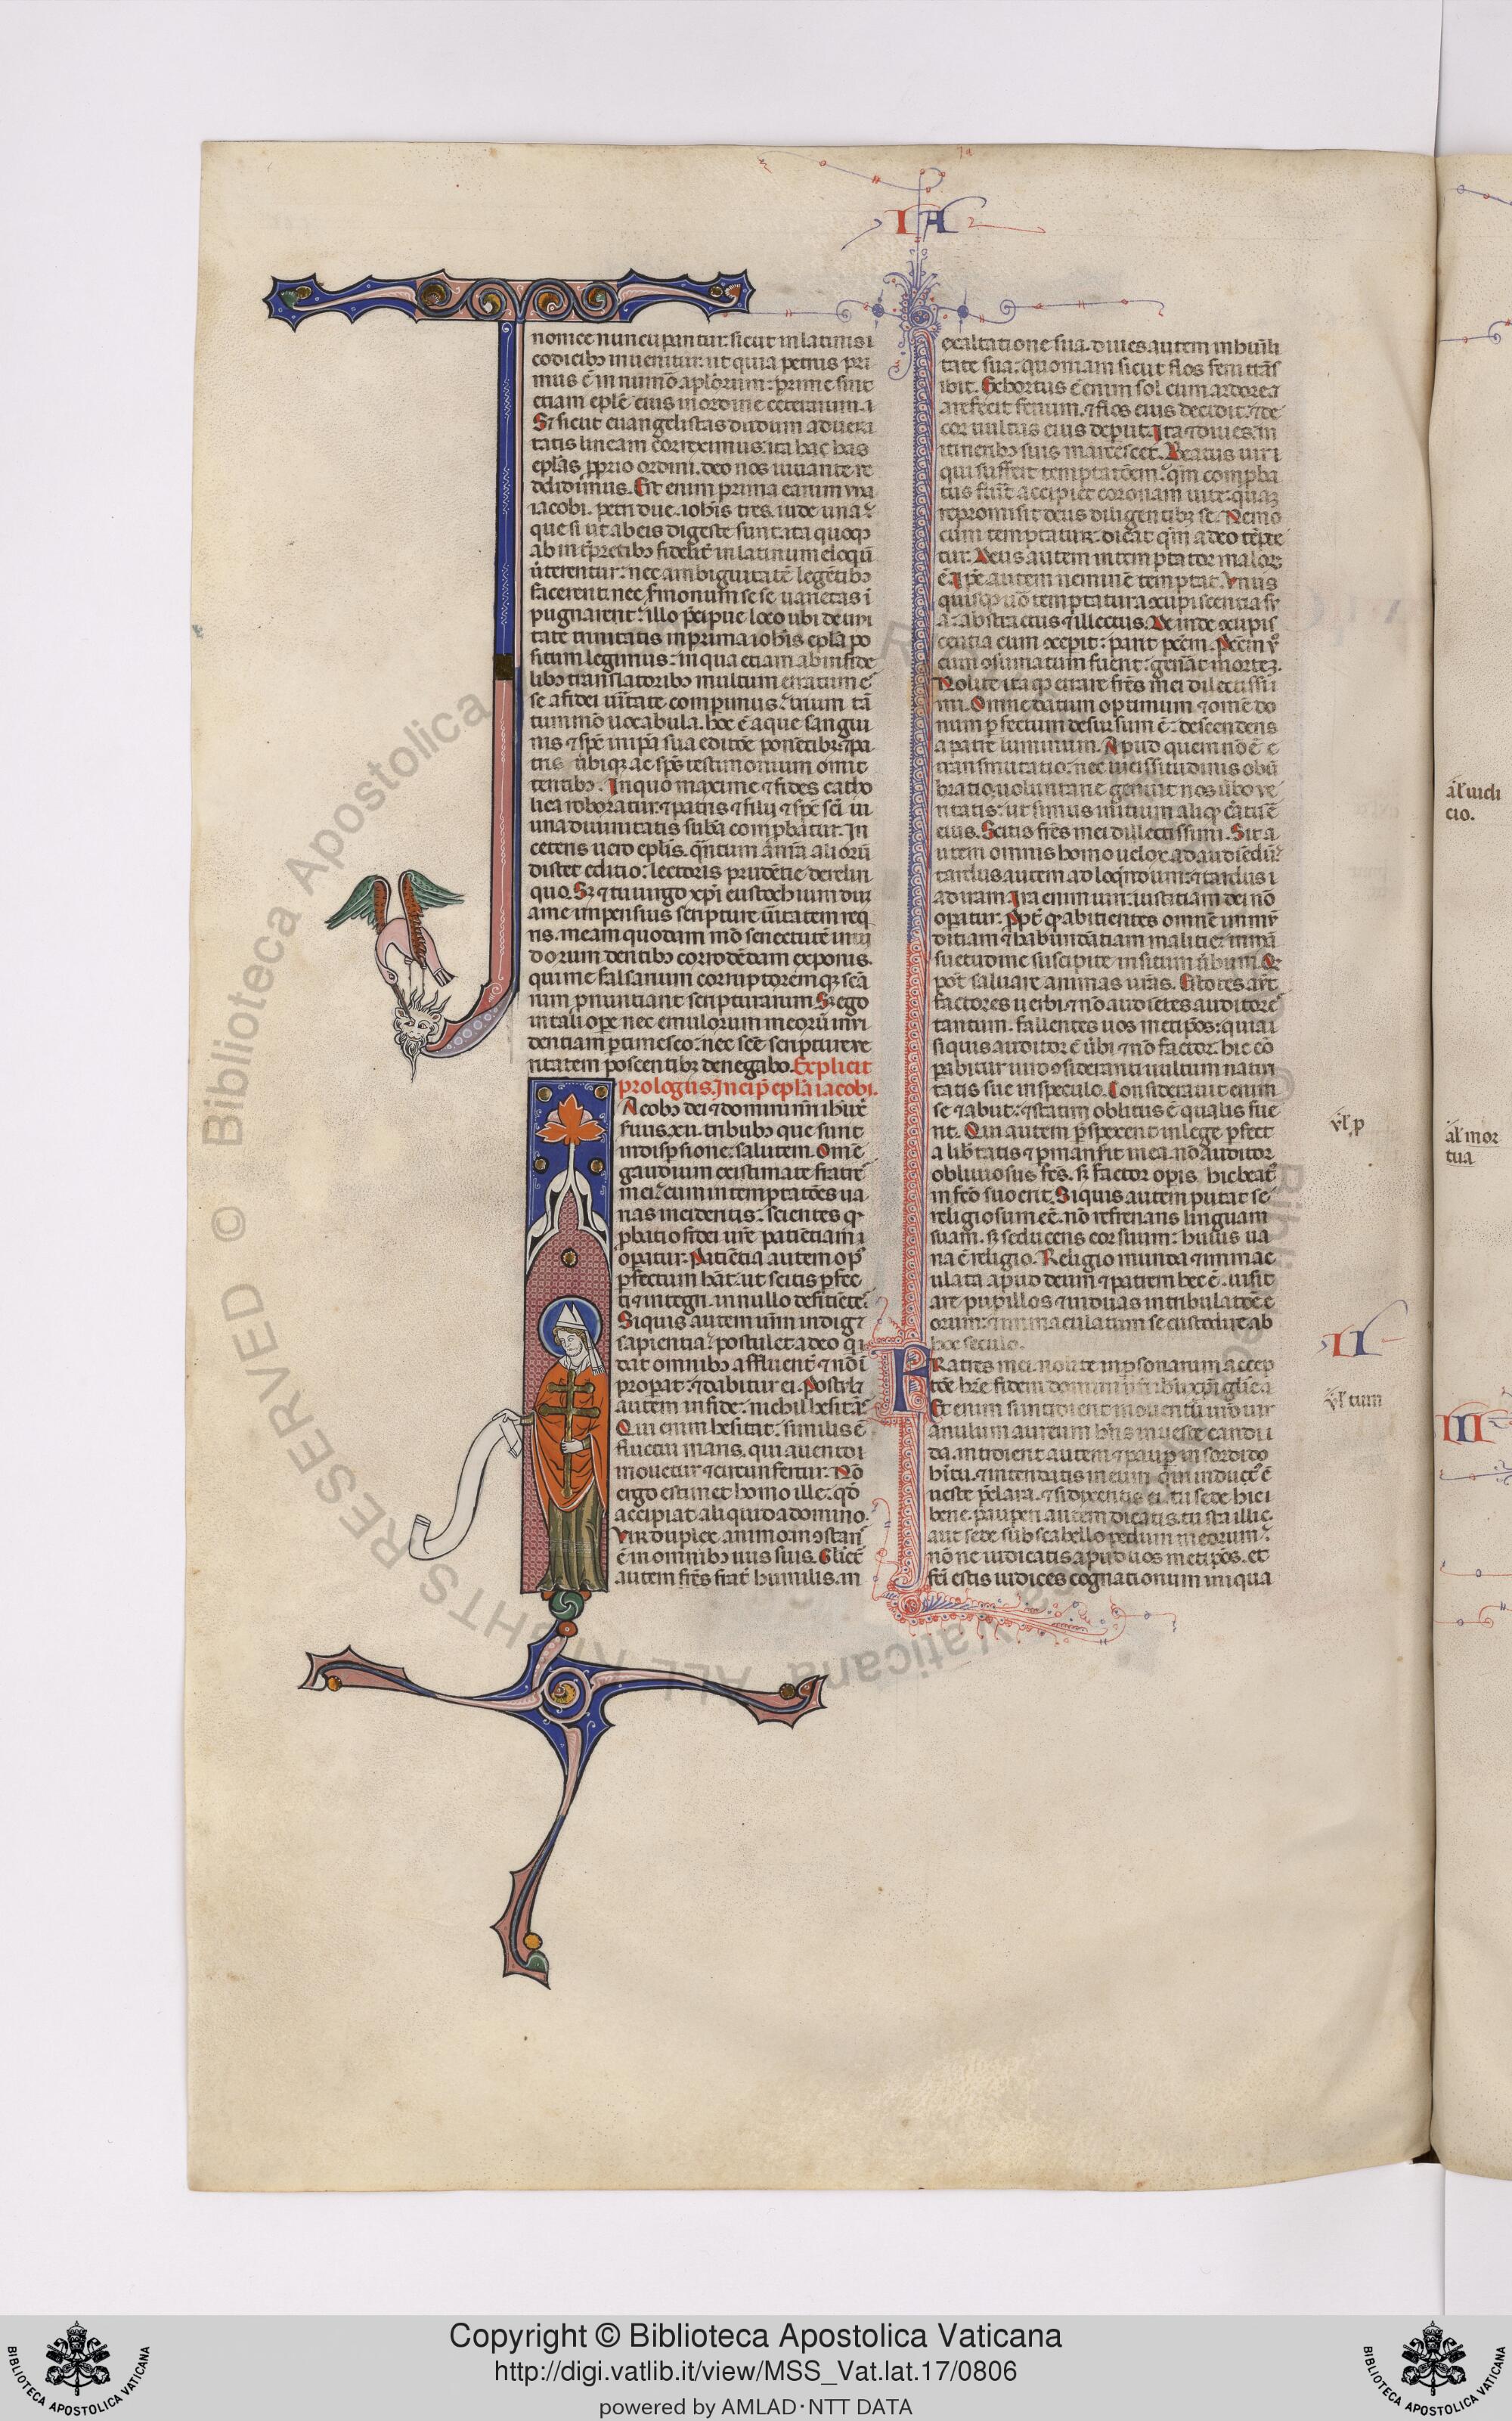 IA
nonice nuncupantur. sicut in latinis i
codicibꝫ inuenitur. ut quia petrus pri
mus ē in num̄o aplo̅rum: prime sint
etiam epl̅e eius in ordine ceterarum. ⁊
Sꝫ sicut euangelistas dudum ad ueri
tatis lineam correximus. ita hac has
epl̅as ꝓprio ordini. deo nos iuuante re
didimus. Est enim prima earum una
iacobi. petri due. iohis tres. iude una.
que si ut ab eis digeste sunt. ita quoqꝫ
ab interp̅retibꝫ fidelit̅ in latinum eloqu̅
u̅terentur: nec ambiguitate̅ lege̅tibꝫ
facerent. nec s̅monum sese uarietas i
pugnarent: illo p̅cipue loco ubi de uni
tate trinitatis in prima iohis epl̅a po
situm legimus: in qua etiam ab infide
libꝫ translatoribꝫ multum erratum e̅
se a fidei u̅itate comperimus: trium ta̅
tummo̅ uocabula. hoc ē aque sangui
nis ⁊ sp̅c in ip̅a sua editio̅e pone̅tibꝫ: ⁊ pa
tris u̅biqꝫ ac sp̅s testimonium omit
tentibꝫ. In quo maxime ⁊ fides catho
lica roboratur. ⁊ patris ⁊ filii ⁊ sp̅c sc̅i
una diuinitatis sub̅a comꝓbatur. In
ceteris uero epl̅is. q̅ntum a n̅r̅a alioru̅
distet editio: lectoris prude̅tie derelin
quo. Sꝫ ⁊ tu uirgo xp̅i eustochium dum
a me impensius scripture u̅itatem req
ris. meam quodam mo̅ senectute̅ inui
dorum dentibꝫ corrode̅dam exponis.
qui me falsarium corruptoremqꝫ sc̅a
rum ꝓnuntiant scripturarum. Sꝫ ego
in tali ope nec emulorum meoru̅ inui
dentiam ꝑtimesco: nec sc̅e scripture ue
ritatem poscentibꝫ denegabo. Explicit
prologus. Incip̅ epl̅a iacobi.
Acobꝫ dei ⁊ domini n̅ri ihu̅ xp̅i
suus. xii. tribubꝫ que sunt
in disp̅sione: salutem. Omne̅
gaudium existimate fratre
mei: cum in temptatio̅es ua
rias incidentis: scientes qꝫ
ꝓbatio fidei ure̅ patientiam
operatur: Patientia autem opꝰ
ꝑfectum ha̅t: ut scitis ꝑfec
ti ⁊ integri. in nullo deficie̅te.
Si quis autem u̅m indigꝫ
sapientia: postulet a deo qi
dat omnibꝫ affluent̅ ⁊ no̅ i
properat: ⁊ dabitur ei. Postulꝫ
autem in fide: nichil hesita̅s
Qui enim hesitat: similis ē
fluctui maris. qui a uento i
mouetur ⁊ circumfertur. No̅
ergo estimet homo ille: qꝫ
accipiat aliquid a domino.
Vir duplex animo: inꝯstan̅
ē in omnibꝫ uiis suis. Gliet̅
autem fr̅es frat̅ humilis. in
exaltatione sua. diues autem in humili
tate sua: quoniam sicut flos feni tra̅s
ibit. Exortus ē enim sol cum ardore ⁊
arefecit fenum. ⁊ flos eius decidit. ⁊ de
cor uultus eius deꝑiit. Ita ⁊ diues. in
itineribꝫ suis marcescet. Beatus uir
qui suffert temptatio̅em: q̅m comꝓba
tus fu̅it accipiet coronam uite: quaꝫ
repromisit deus diligentibꝫ se. Nemo
cum temptatur: dicat q̅m a deo te̅pte
tur. Deus autem intemptator malorꝫ
ē. Ip̅e autem nemine̅ temptat. Vnus
quisqꝫ uo̅ temptatur a ꝯcupiscentia su
a: abstractus ⁊ illectus. De inde ꝯcupis
centia cum ꝯcepit: parit pecc̅m. Pecc̅m u̅
cum ꝯsumatum fuerit: gen̅at morteꝫ.
Nolite itaqꝫ errare fr̅es mei dilectissi
mi. Omne datum optimum ⁊ om̅e do
num ꝑfectum desursum ē: descendens
a patre luminum. Apud quem no̅ ē
transmutatio. nec uicissitudinis obu̅
bratio. uoluntarie genuit nos u̅bo ue
ritatis: ut simus initium aliqꝫ c̅atur̅e
eius. Scitis fr̅es mei dillectissimi. Sit a
utem omnis homo uelox ad audiendu̅:
tardus autem ad loque̅dum: ⁊ tardus i
ad iram. Ira enim uiri: iustitiam dei no̅
operatur. Propt̅ qꝫ abitientes omne̅ inmu̅
ditiam ⁊ habunda̅tiam malitie: in ma̅
suetudine suscipite insitum u̅bum. Qꝫ
pot̅ saluare animas ur̅as. Estotes aut̅
factores uerbi. ⁊ no̅ auditores auditore
tantum. fallentes uos metip̅os: quia i
si quis auditor ē u̅bi ⁊ no̅ factor: hic co̅
ꝑabitur uiro ꝯsideranti uultum natiui
tatis sue in speculo. Considerauit enim
se ⁊ abiit: ⁊ statim oblitus ē qualis fue
rit. Qui autem ꝑspexerit in lege ꝑfect
a lib̅tatis ⁊ ꝑmanserit in ea. no̅ auditor
obliuiosus fc̅s. sꝫ factor operis. hic beat̅
in fc̅o suo erit. Si quis autem putat se
religiosum ee̅. no̅ refrenans linguam
suam. sꝫ seducens cor suum: huius ua
na ē religio. Religio munda ⁊ inmac
ulata apud deum ⁊ patrem hec ē. uisit
are pupillos ⁊ uiduas in tribulatio̅e e
orum: ⁊ inmaculatum se custodire ab
hoc seculo.
FRatres mei. nolite in ꝑsonarum accep
tio̅e hr̅e fidem domini n̅ri ihu̅ xp̅i gl̅ie.
Et enim si introierit in ouentu̅ ur̅o uir
anulum aureum habe̅s in ueste candi
da. introierit autem ⁊ pauꝑ in sordido
ha̅itu. ⁊ intendatis in eum qui indutꝰ ē
ueste p̅clara. ⁊ si dixeritis ei. tu sede hic i
bene. pauperi autem dicatis. tu sta illic.
aut sede sub scabello pedum meorum:
no̅ne iudicatis apud uos metip̅os. et
fc̅i estis iudices cogitationum iniqua
ul̅. ꝑ
II
ul̅ tum
al̅ iudi
cio.
al̅ mor
tua
III
Copyright © Biblioteca Apostolica Vaticana
http://digi.vatlib.it/view/MSS_Vat.lat.17/0806
powered by AMLAD · NTT DATA
BIBLIOTECA APOSTOLICA VATICANA
BIBLIOTECA APOSTOLICA VATICANA
© Biblioteca Apostolica Vaticana ALL RIGHTS RESERVED